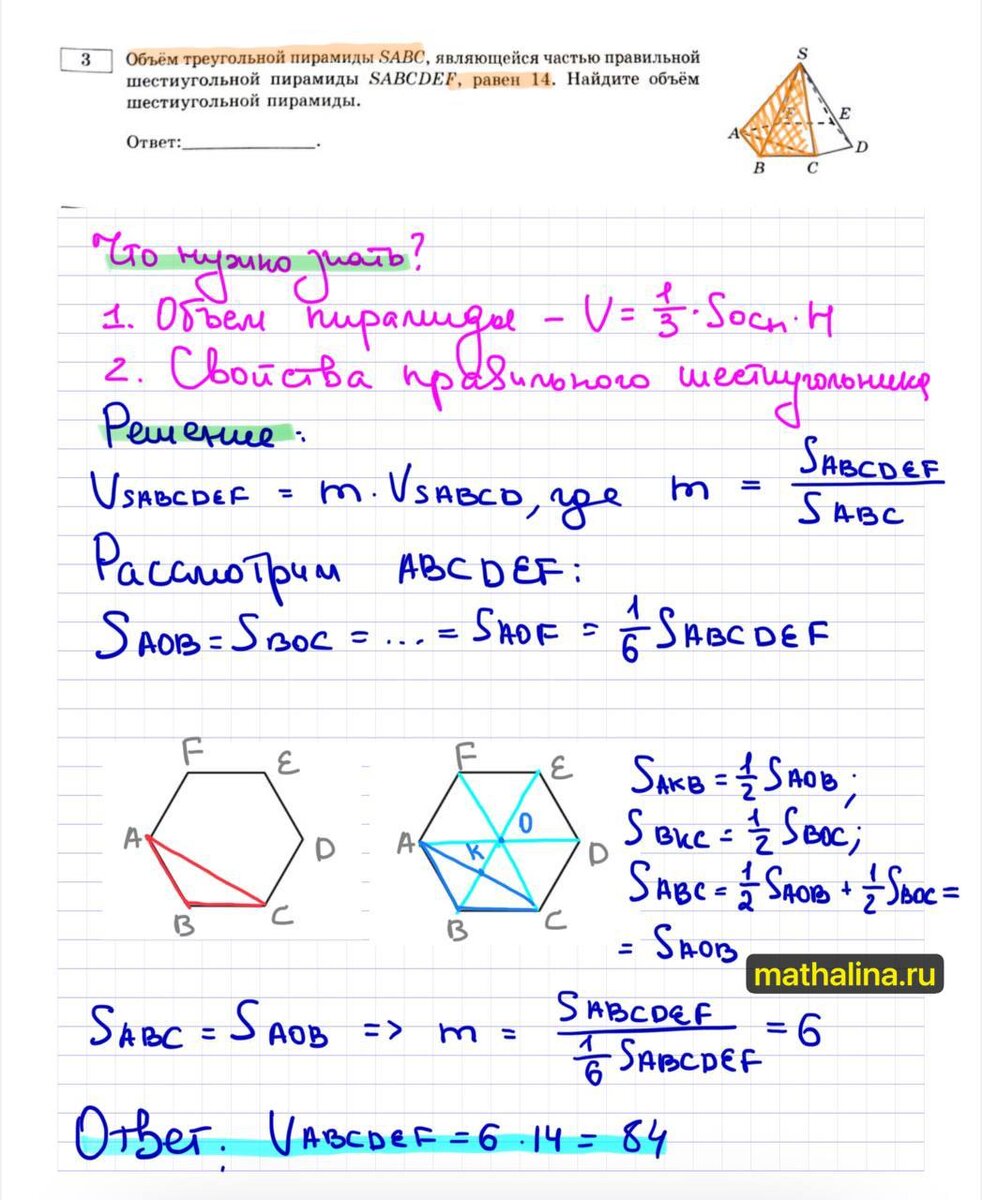 3
Объём треугольной пирамиды SABC, являющейся частью правильной
шестиугольной пирамиды SABCDEF, равен 14. Найдите объём
шестиугольной пирамиды.
Ответ:_______________.
S
A
F
E
D
B
C
Что нужно знать?
1. Объем пирамиды – V = 1/3 · Sосн · H
2. Свойства правильного шестиугольника
Решение:
VSABCDEF = m · VSABCD, где m = SABCDEF / SABC
Рассмотрим ABCDEF:
SAOB = SBOC = ... = SAOF = 1/6 SABCDEF
F
E
A
D
B
C
F
E
O
A
K
D
B
C
SAKB = 1/2 SAOB;
SBKC = 1/2 SBOC;
SABC = 1/2 SAOB + 1/2 SBOC =
= SAOB
mathalina.ru
SABC = SAOB => m = SABCDEF / 1/6 SABCDEF = 6
Ответ: VABCDEF = 6 · 14 = 84